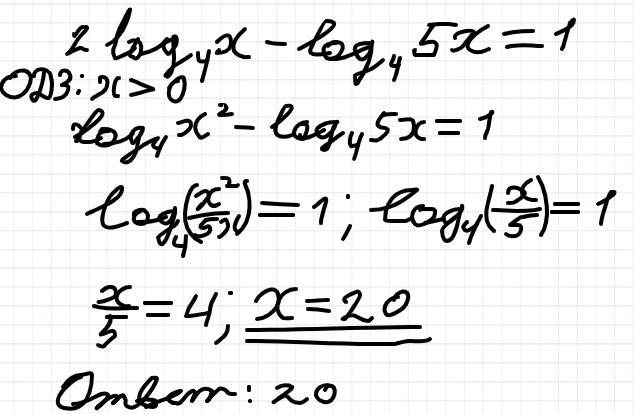 2 log₄x - log₄ 5x = 1
ОДЗ: x > 0
log₄x² - log₄5x = 1
log₄(x²/5x) = 1; log₄(x/5) = 1
x/5 = 4; x = 20
Ответ: 20